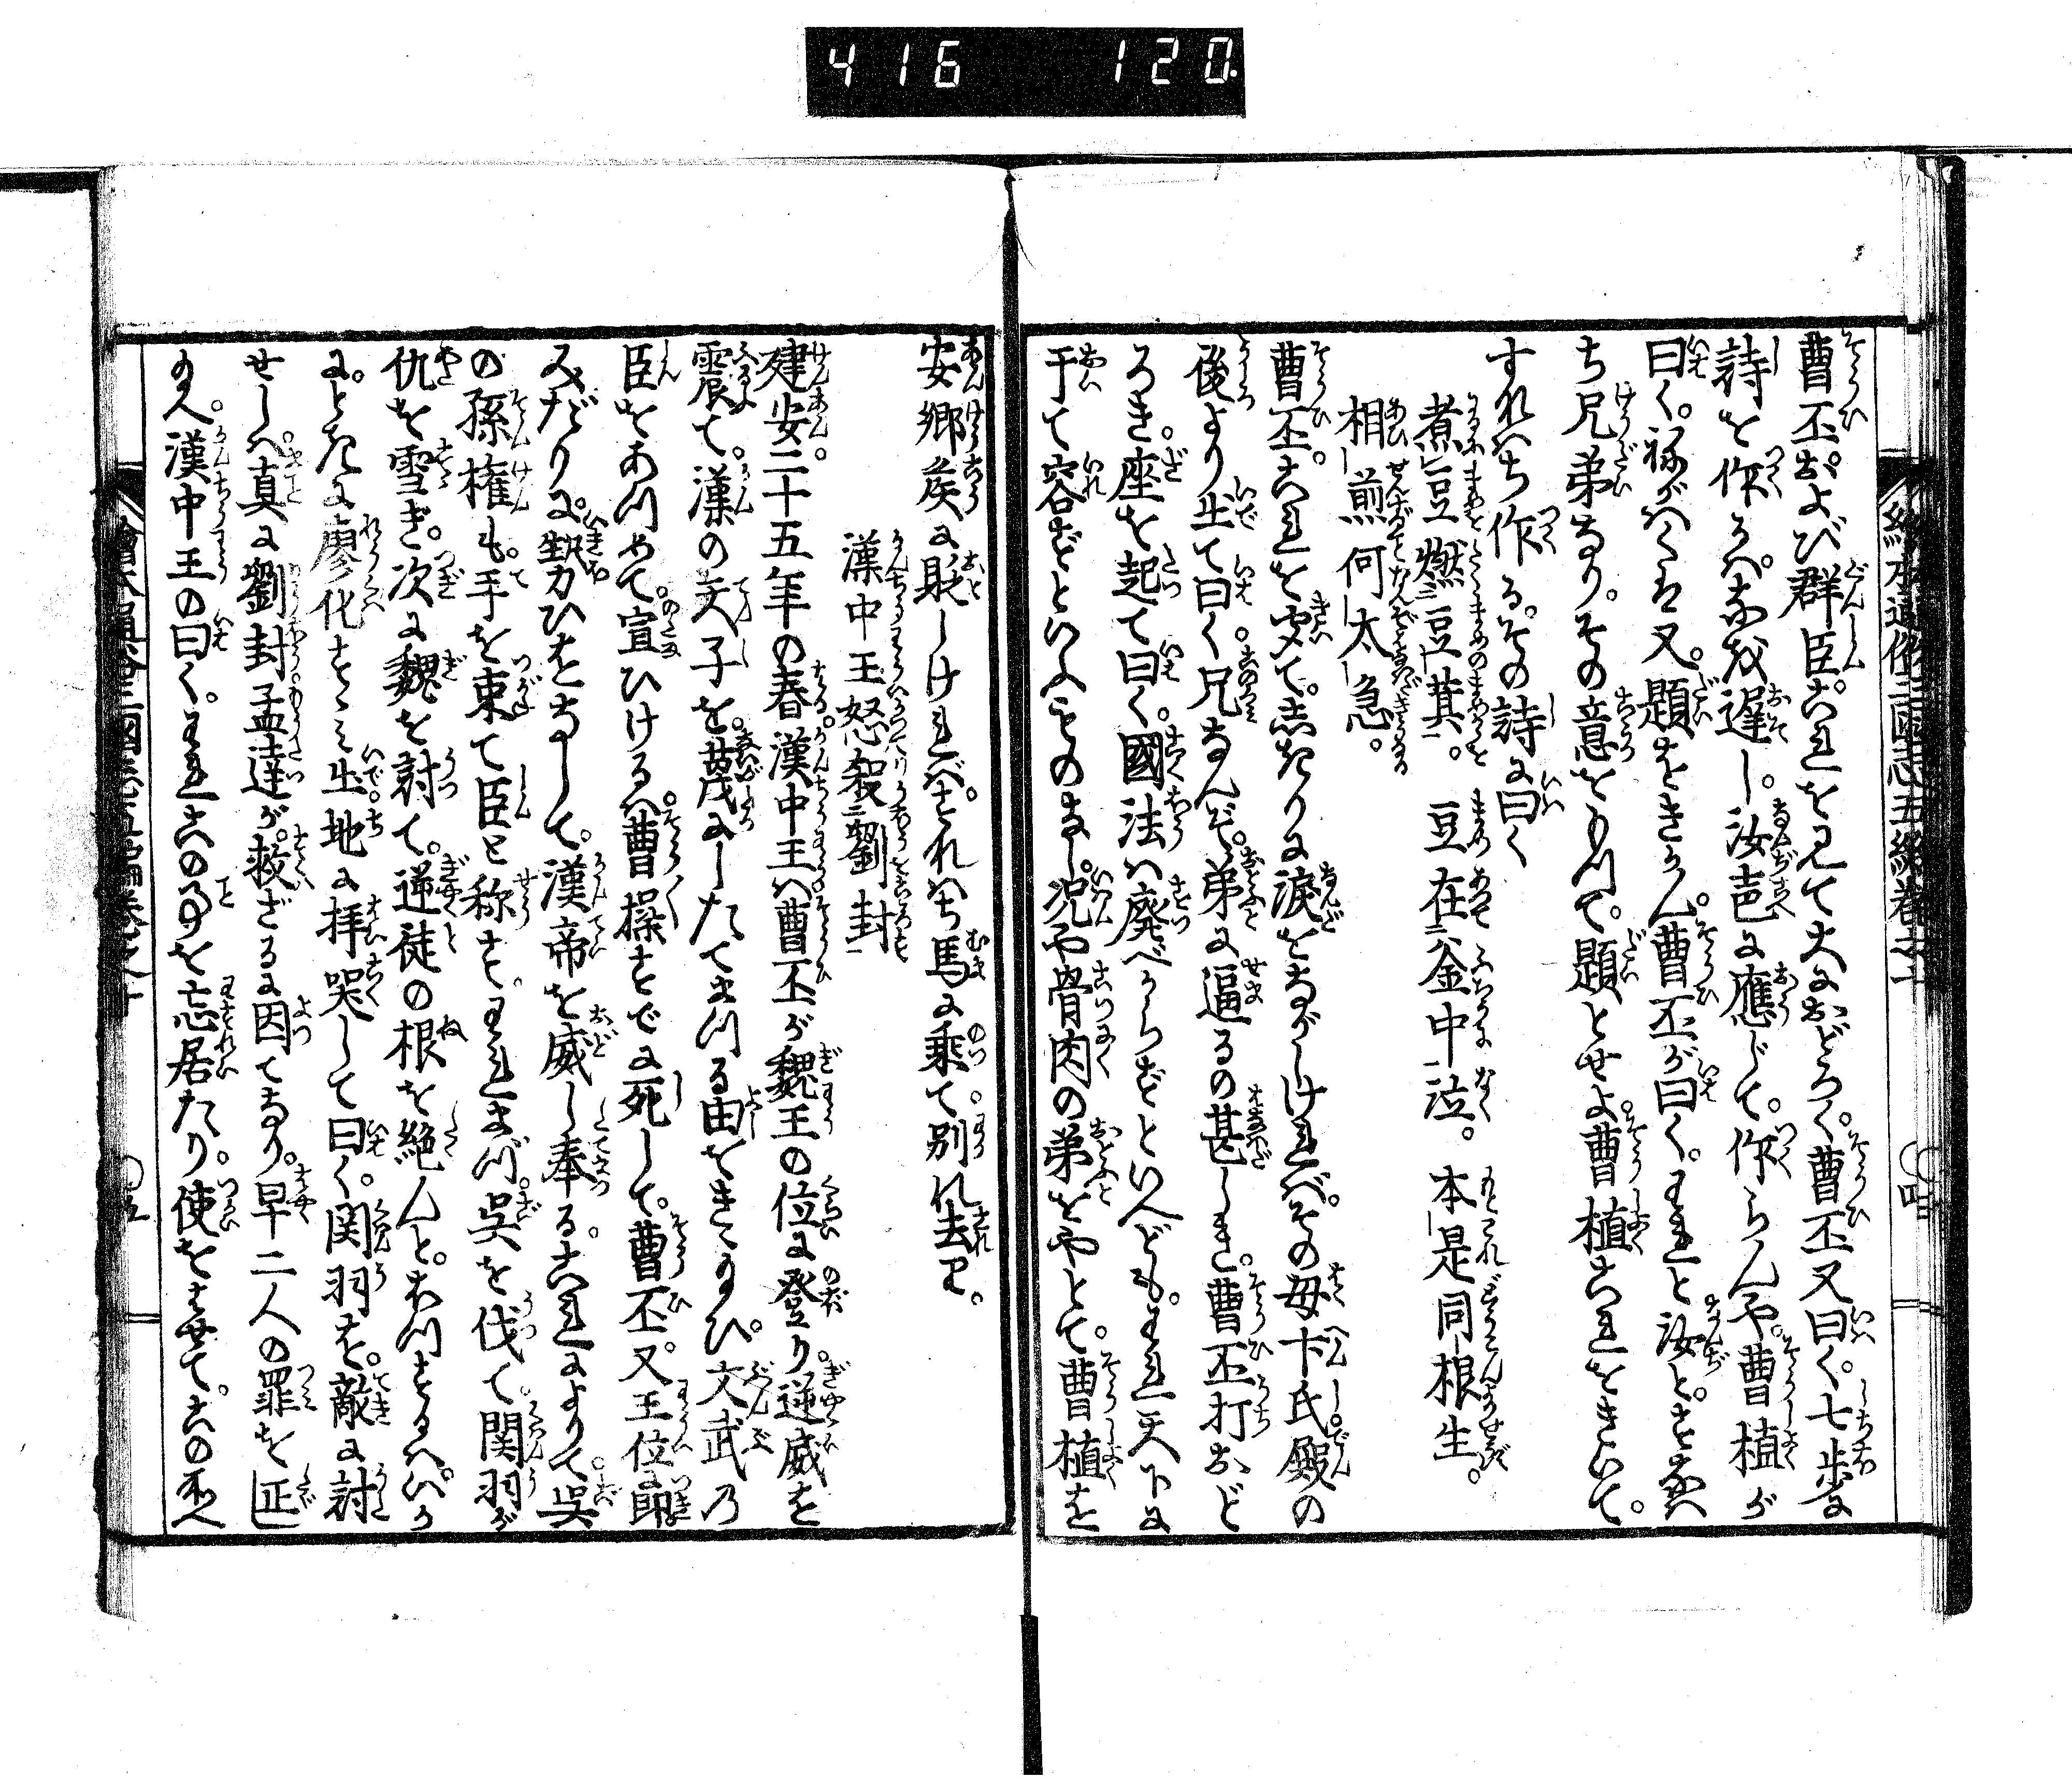 416 120
曹丕および群臣。これを見て大におどろく。曹丕又曰く。七歩に
詩を作るハ。なほ遅し。汝声に應じて。作らんや。曹植が
曰く。祢がハくは又。題をきかん。曹丕が曰く。われと汝と。すなハ
ち兄弟なり。その意をもつて。題とせよ。曹植これをきいて。
すなハち作る。その詩に曰く
煮豆燃豆萁。 豆在釜中泣。 本是同根生。
相煎何太急。
曹丕。これを聞て。しきりに涙をながしければ。その母卞氏。殿の
後より出て曰く。兄なんぞ。弟に逼るの甚しき。曹丕打おど
ろき。座を起て曰く。國法ハ廃べからずといへども。われ天下に
于て容ずといふものなし。況や骨肉の弟をやとて。曹植を
安郷侯に貶しければ。すなハち馬に乗て。別れ去る。
漢中王怒殺劉封
建安。二十五年の春。漢中王ハ。曹丕が魏王の位に登り。逆威を
震て。漢の天子を。蔑にしたてまつる由をきゝ給ひ。文武乃
臣をあつめて。宣ひけるハ。曹操すでに死して。曹丕。又王位に即
みだりに勢力ひをなして。漢帝を威し奉る。これによりて。呉
の孫権も。手を束て臣と称す。われまづ。呉を伐て。関羽が
仇を雪ぎ。次に魏を討て。逆徒の根を絶んと。おつするハ。いか
に。ときに廖化すゝみ出。地に拝哭して曰く。関羽を。敵に討
せしハ。真に劉封。孟達が。救ざるに因てなり。早く二人の罪を正
給へ。漢中王の曰く。われこの事を忘居たり。使をはせて。この両人